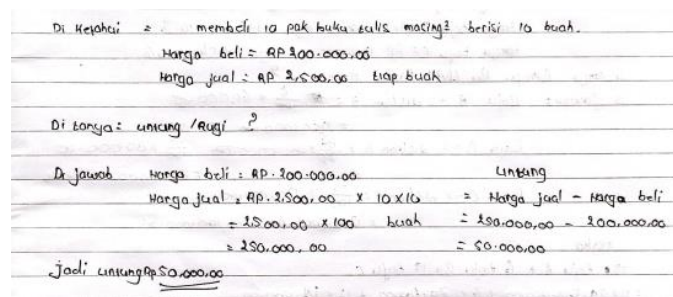 Di Ketahui = membeli 10 pak buku tulis masing² berisi 10 buah.
Harga beli = RP 200.000,00
Harga jual = RP 2,500,00 tiap buah
Di tanya = untung / Rugi ?
Di jawab Harga beli = RP. 200.000,00 untung
Harga jual = RP. 2.500,00 x 10x10 = Harga jual - Harga beli
= 2500,00 x 100 buah = 250.000,00 - 200.000,00
= 250.000,00 = 50.000,00
Jadi untung Rp 50.000,00